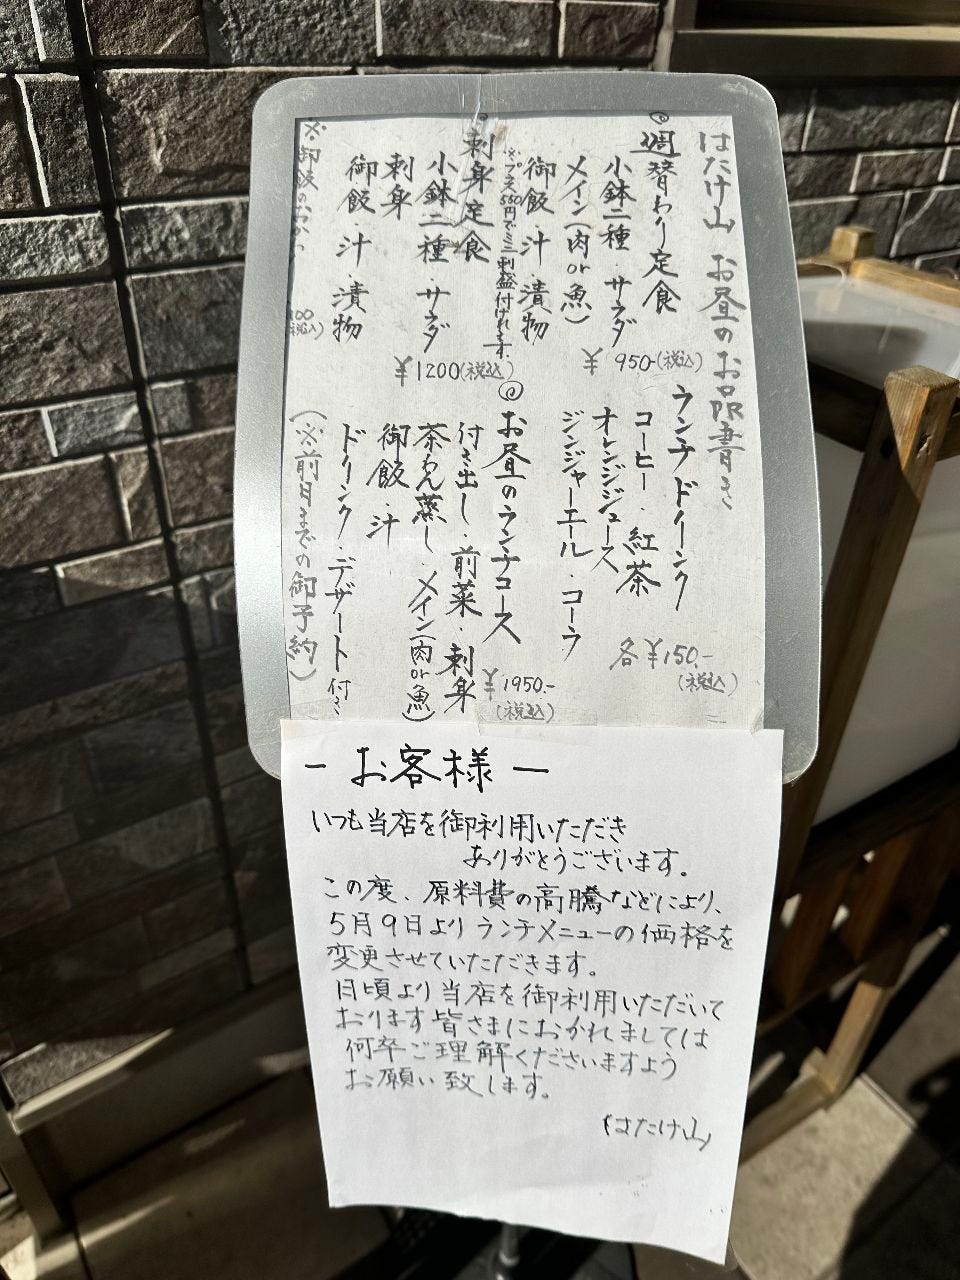 はたけ山 お昼のお品書き
◎週替わり定食
小鉢二種・サラダ
メイン(肉or魚)
御飯・汁・漬物
¥950-(税込)
※プラス550円でミニ刺盛付けれます。
刺身定食
小鉢二種・サラダ
刺身
御飯・汁・漬物
¥1200(税込)
※御飯のおかわり
100
(税込)
ランチドリンク
コーヒー・紅茶
オレンジジュース
ジンジャーエール・コーラ
各¥150.-
(税込)
◎お昼のランチコース
付き出し・前菜・刺身
茶わん蒸し・メイン(肉or魚)
御飯・汁
ドリンク・デザート付き
¥1950.-
(税込)
(※前日までの御予約)
-お客様-
いつも当店を御利用いただき
ありがとうございます。
この度、原料費の高騰などにより、
5月9日よりランチメニューの価格を
変更させていただきます。
日頃より当店を御利用いただいて
おります皆さまにおかれましては
何卒ご理解くださいますよう
お願い致します。
はたけ山